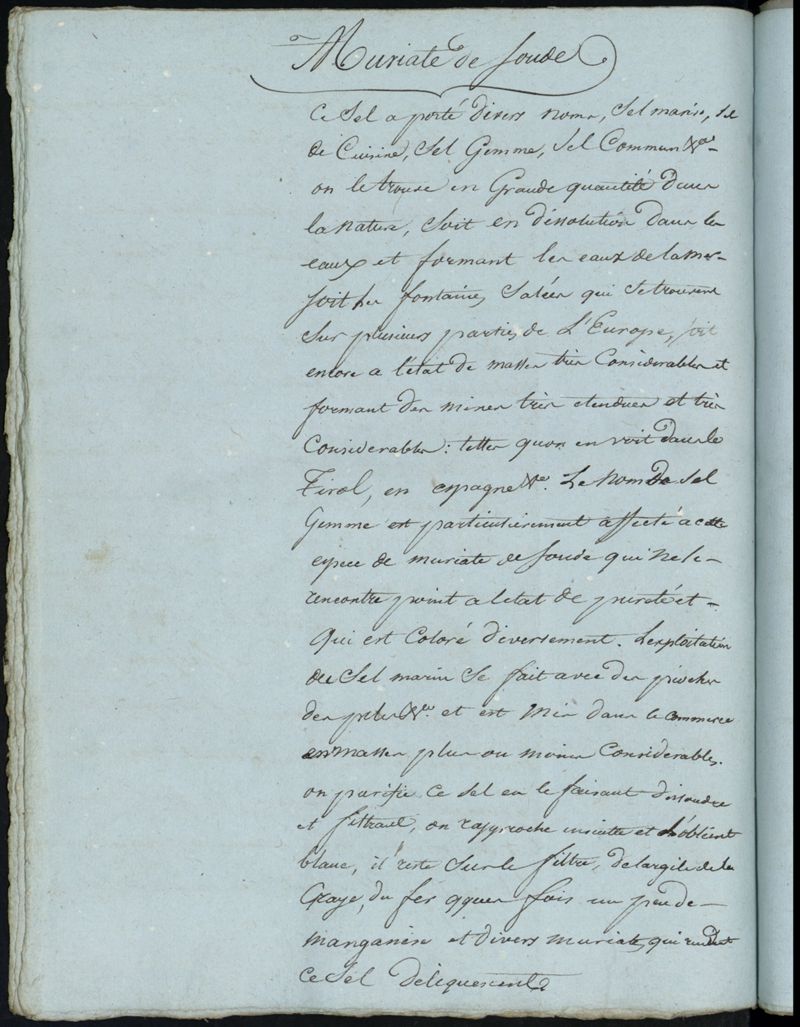 Muriate de Soude
Ce Sel a porté divers noms, Sel marin, sel
de Cuisine, Sel Gemme, Sel Commun &a
on le trouve en Grande quantité dans
la nature, Soit en dissolution dans les
eaux et formant les eaux de la mer
Soit les fontaines Salées qui se trouvent
Sur plusieurs parties de L'Europe, soit
encore a l'état de masses très Considerables et
formant des mines très etendues et très
Considerables: telles quon en voit dans le
Tirol, en espagne &a. Le nom De Sel
Gemme est particulièrement affecté a cette
espece de muriate de Soude qui ne se
rencontre point a letat de pureté et
qui est Coloré diversement. Lexploitation
du Sel marin Se fait avec des pioches
des pelles &a. et est Mis dans le commerce
en masses plus ou moins Considerables.
on purifie Ce Sel en le faisant dissoudre
et filtrant, on rapproche ensuite et L'obtient
blanc, il reste Sur le filtre, de largile de la
Craye, du fer qques fois un peu de
manganèse et divers muriates qui rendent
ce Sel déliquescent